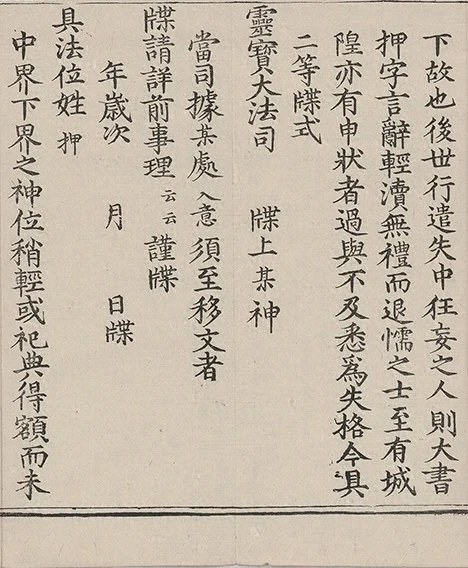 下故也後世行遣失中狂妄之人則大書
押字言辭輕瀆無禮而退懦之士至有城
隍亦有申狀者過與不及悉爲失格今具
二等牒式
靈寶大法司　牒上某神
當司據某處入意須至移文者
牒請詳前事理云云謹牒
年歲次　月　日牒
具法位姓　押
中界下界之神位稍輕或祀典得額而未